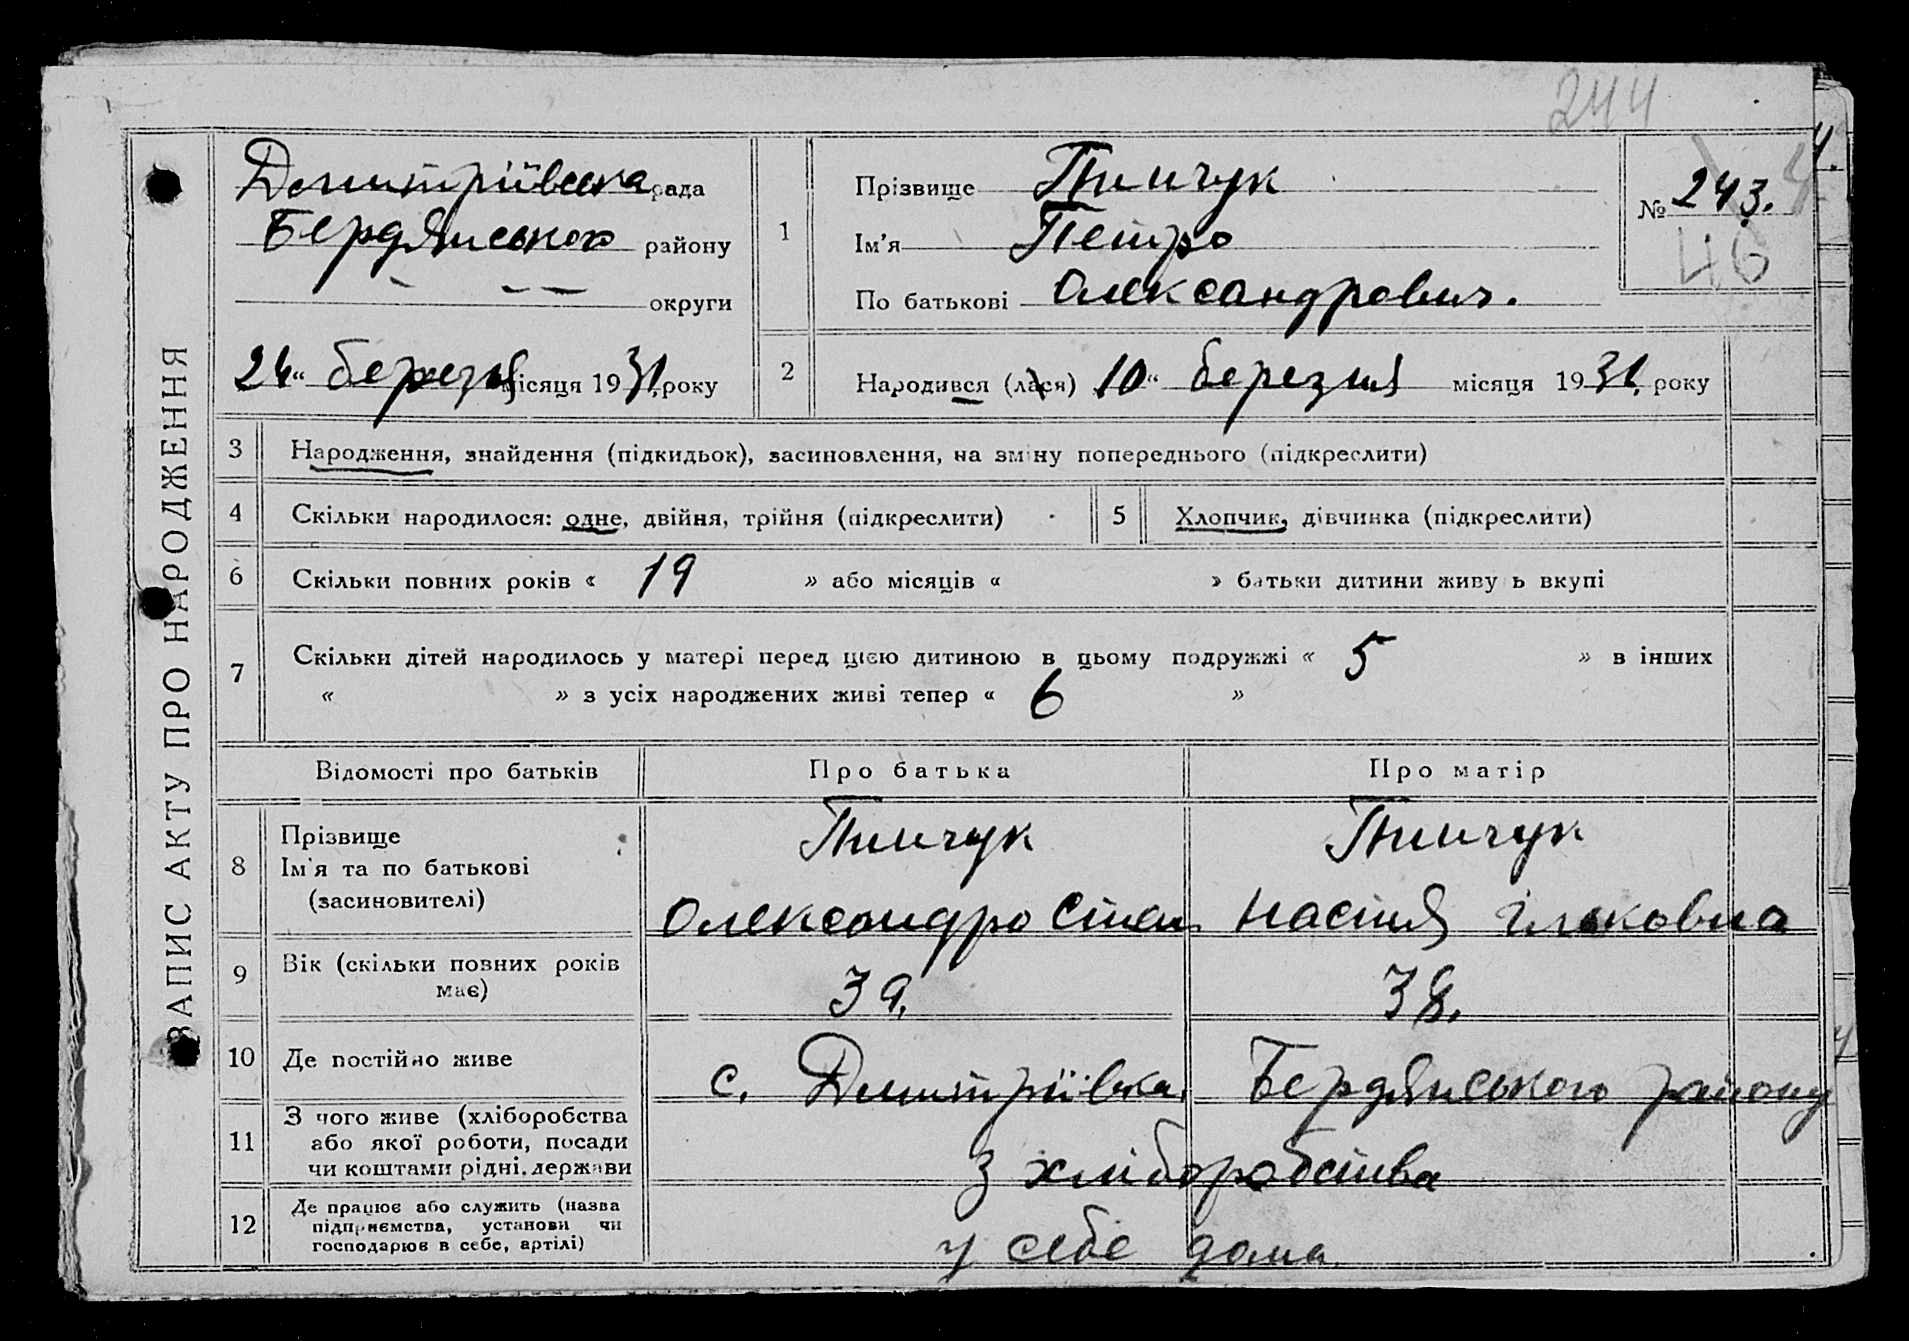 244
ЗАПИС АКТУ ПРО НАРОДЖЕННЯ
Дмитріївська рада
Бердянського району
округи
24 “ березня місяця 1931 року
1
Прізвище Тимчук
Ім'я Петро
По батькові Олександрович.
№ 243.
46
2
Народився (лася) 10 “ березня місяця 1931. року
3 Народження, знайдення (підкидьок), засиновлення, на зміну попереднього (підкреслити)
4 Скільки народилося: одне, двійня, трійня (підкреслити)
5 Хлопчик, дівчинка (підкреслити)
6 Скільки повних років « 19 » або місяців « » батьки дитини живуть вкупі
7 Скільки дітей народилось у матері перед цією дитиною в цьому подружжі « 5 » в інших
« » з усіх народжених живі тепер « 6 »
Відомості про батьків Про батька Про матір
8 Прізвище
Ім'я та по батькові
(засиновителі)
Тимчук
Олександро Степ
Тимчук
Настя Ільковна
9 Вік (скільки повних років
має)
39.
38.
10 Де постійно живе с. Дмитріївка, Бердянського району
11 З чого живе (хліборобства
або якої роботи, посади
чи коштами рідні, держави
з хліборобства
12 Де працює або служить (назва
підприємства, установи чи
господарює в себе, артілі)
у себе дома